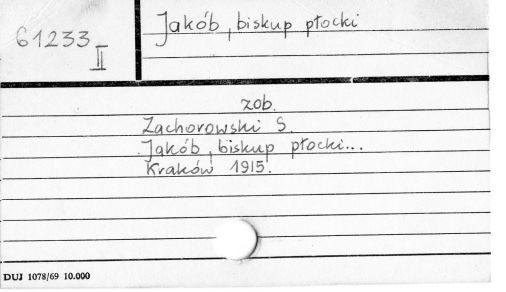 61233
II
Jakób, biskup płocki
zob.
Zachorowski S.
Jakób, biskup płocki...
Kraków 1915.
DUJ 1078/69 10.000